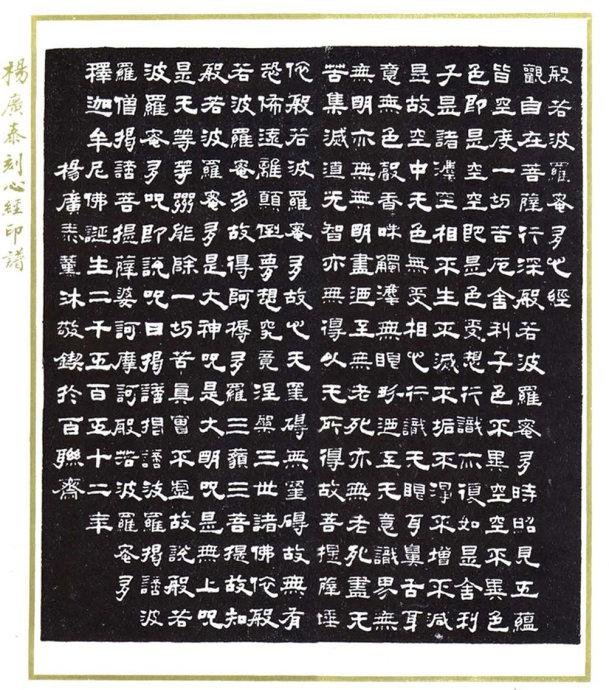 般若波羅蜜多心經
觀自在菩薩行深般若波羅蜜多時昭見五蘊
皆空度一切苦厄舍利子色不異空空不異色
色即是空空即是色受想行識亦復如是舍利
子是諸灋空相不生不滅不垢不淨不增不減
是故空中无色無受想行識无眼耳鼻舌身
意無色聲香味觸灋無眼界迺至无意識界無
無明亦無無明盡迺至無老死亦無老死盡无
苦集滅道无智亦無得以无所得故菩提薩埵
依般若波羅蜜多故心无罣礙無罣礙故無有
恐怖遠離顛倒夢想究竟涅槃三世諸佛依般
若波羅蜜多故得阿耨多羅三藐三菩提故知
般若波羅蜜多是大神咒是大明咒是無上咒
是无等等咒能除一切苦真實不虛故說般若
波羅蜜多咒即說咒曰揭諦揭諦波羅揭諦波
羅僧揭諦菩提薩婆訶摩訶般若波羅蜜多
釋迦牟尼佛誕生二千五百五十二年
楊廣泰薰沐敬鍥於百聯齋
楊廣泰刻心經印譜